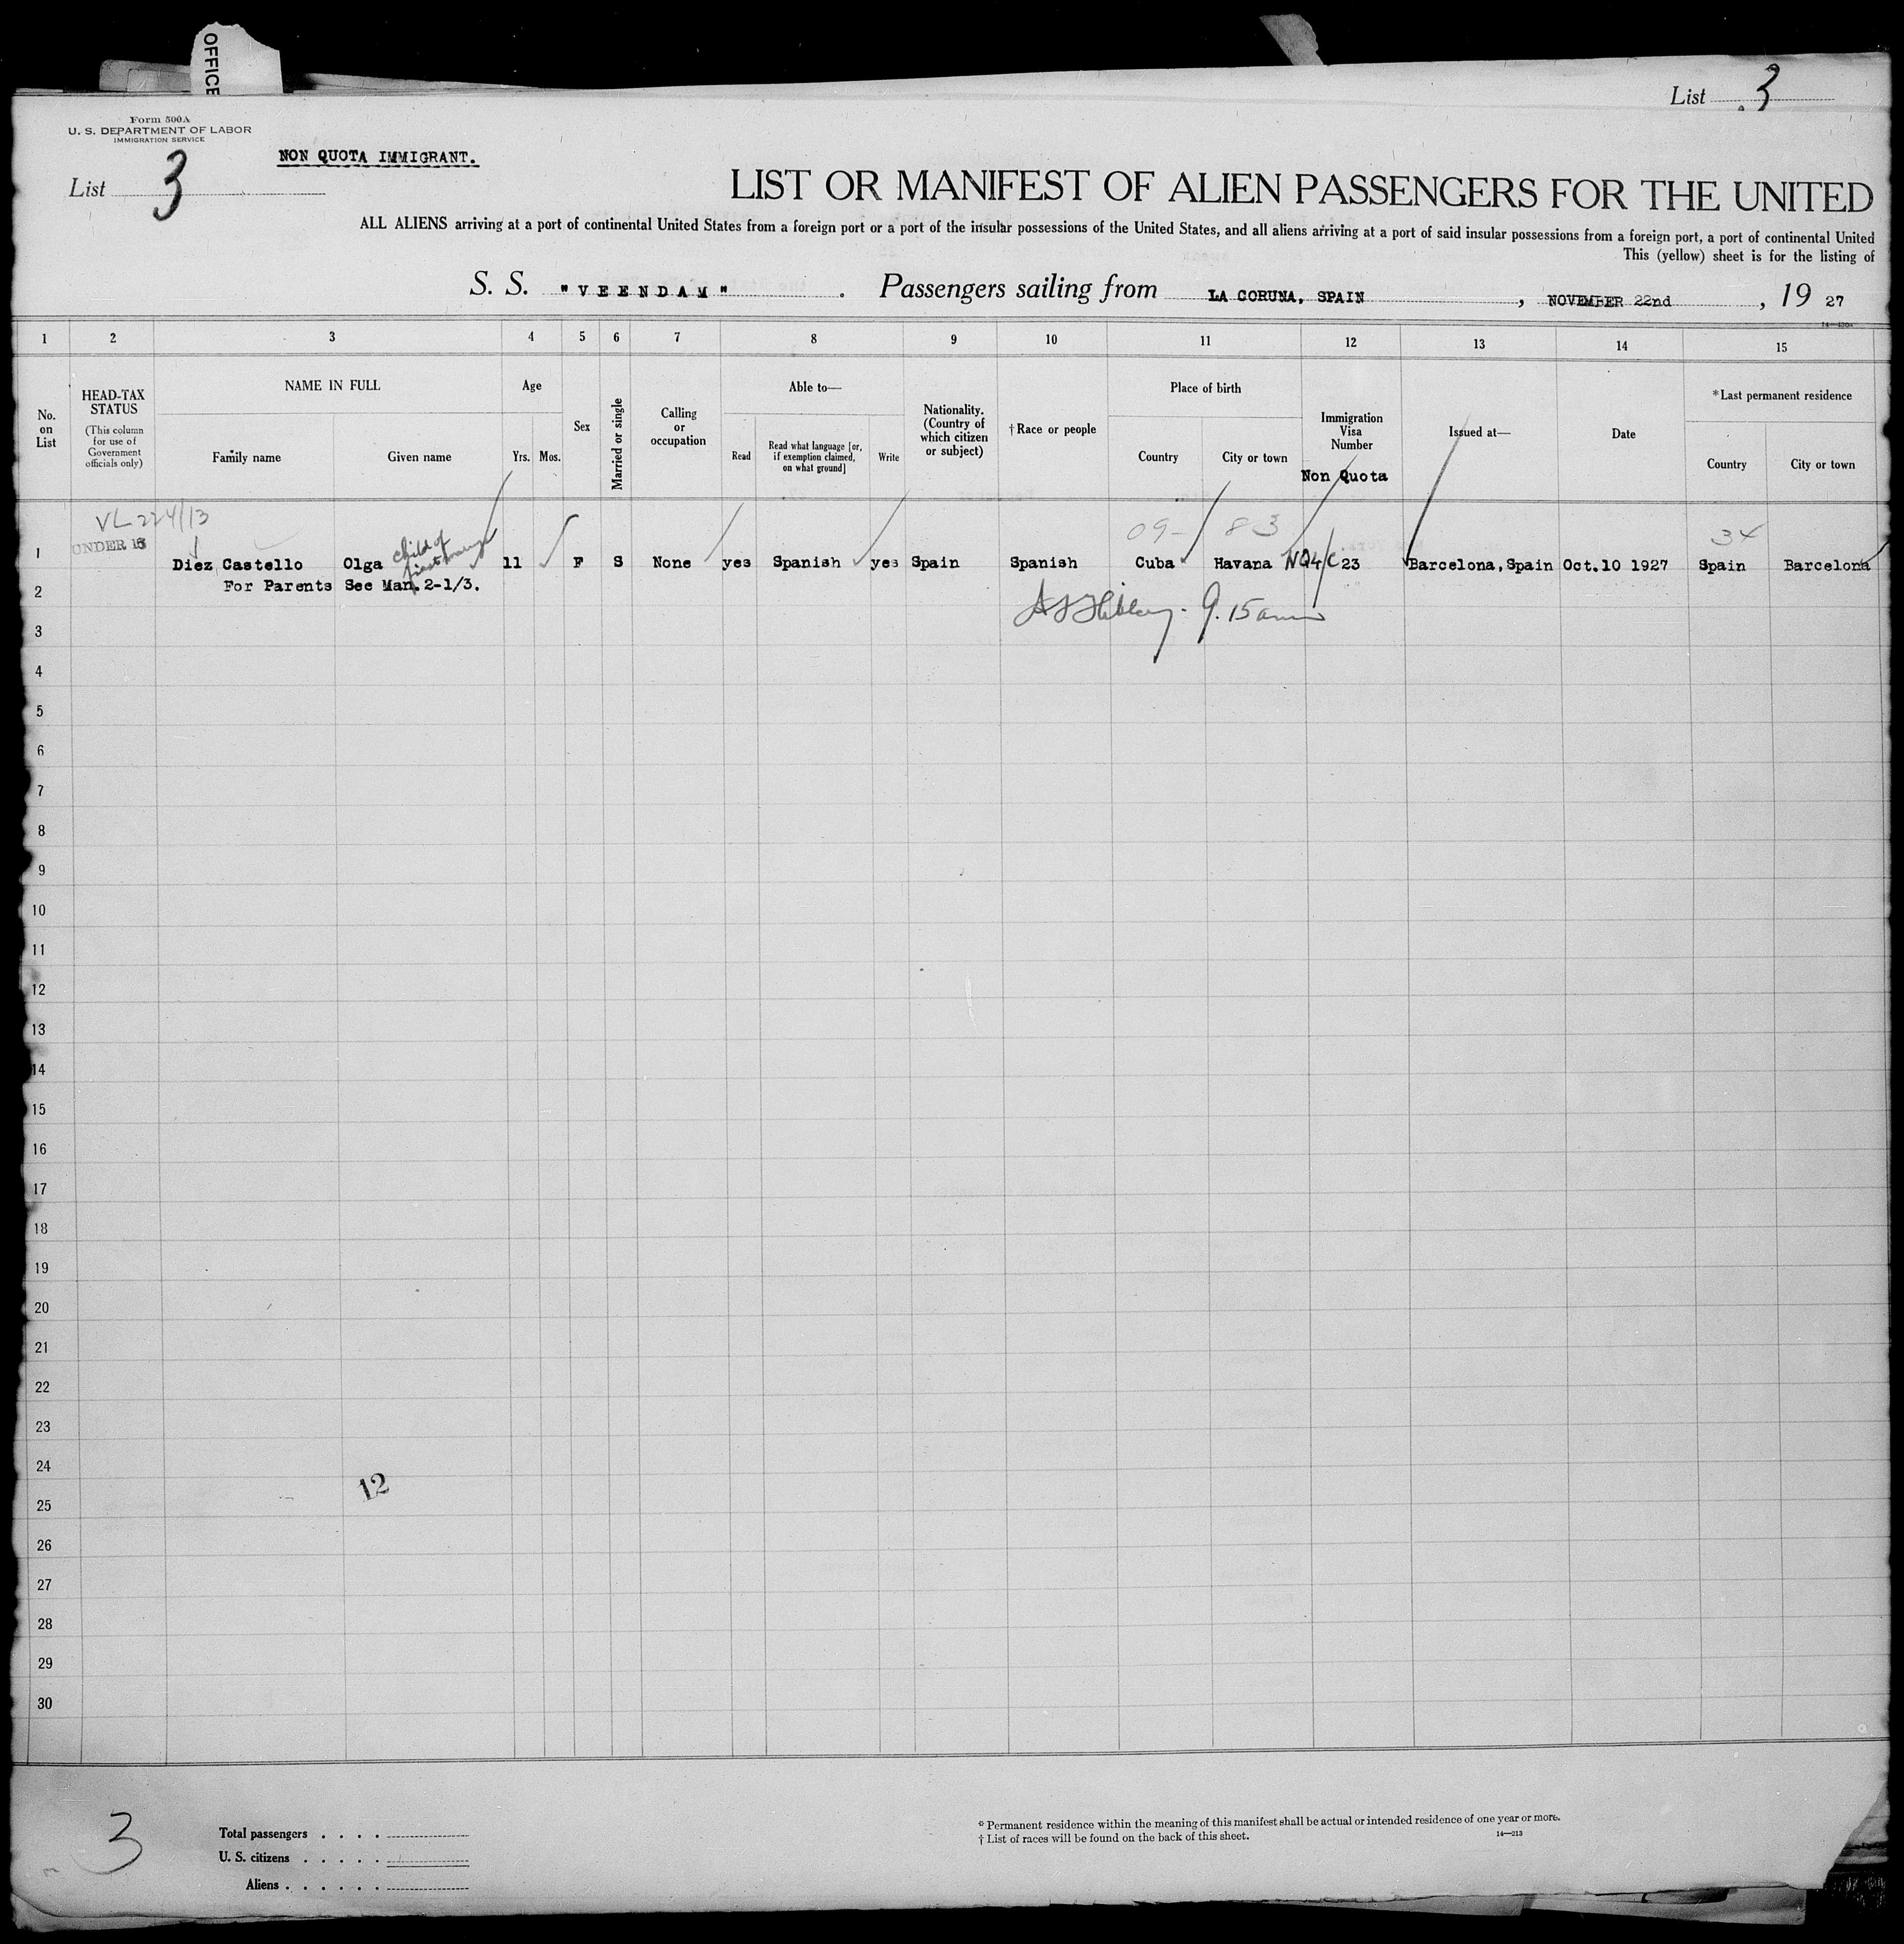 OFFICE
List 3
Form 500A
U. S. DEPARTMENT OF LABOR
IMMIGRATION SERVICE
NON QUOTA IMMIGRANT.
List 3
LIST OR MANIFEST OF ALIEN PASSENGERS FOR THE UNITED
ALL ALIENS arriving at a port of continental United States from a foreign port or a port of the insular possessions of the United States, and all aliens arriving at a port of said insular possessions from a foreign port, a port of continental United
This (yellow) sheet is for the listing of
S. S. "VEENDAM". Passengers sailing from LA CORUNA, SPAIN, NOVEMBER 22nd, 19 27
1 2 3 4 5 6 7 8 9 10 11 12 13 14 15
No. on List
HEAD-TAX STATUS
(This column for use of Government officials only)
NAME IN FULL
Family name Given name
Age
Yrs. Mos.
Sex
Married or single
Calling or occupation
Able to—
Read
Read what language [or, if exemption claimed, on what ground]
Write
Nationality. (Country of which citizen or subject)
†Race or people
Place of birth
Country City or town
Immigration Visa Number
Non Quota
Issued at—
Date
*Last permanent residence
Country City or town
VL 224/13
09- 83 34
UNDER 16
child of
1 Diez Castello Olga 11 F S None yes Spanish yes Spain Spanish Cuba Havana NQ4/C 23 Barcelona, Spain Oct.10 1927 Spain Barcelona
For Parents See Man. 2-1/3.
2
9.15 am
3
4
5
6
7
8
9
10
11
12
13
14
15
16
17
18
19
20
21
22
23
24
12
25
26
27
28
29
30
3
Total passengers . . . .
U. S. citizens . . . . .
Aliens . . . . . .
* Permanent residence within the meaning of this manifest shall be actual or intended residence of one year or more.
† List of races will be found on the back of this sheet.
14—213